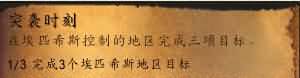 突袭时刻
在埃匹希斯控制的地区完成三项目标。
1/3 完成3个埃匹希斯地区目标